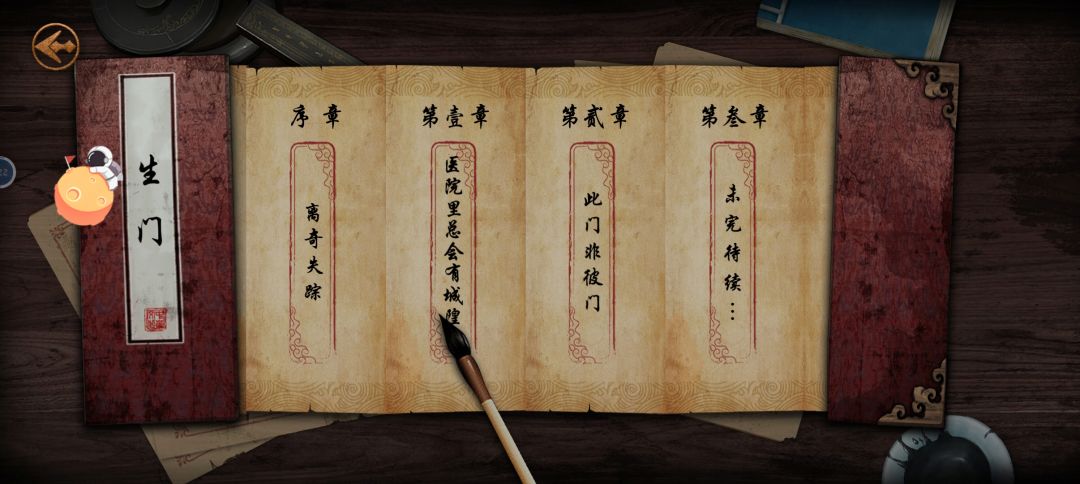 生门
序章
离奇失踪
第壹章
医院里总会有城隍
第贰章
此门非彼门
第叁章
未完待续...